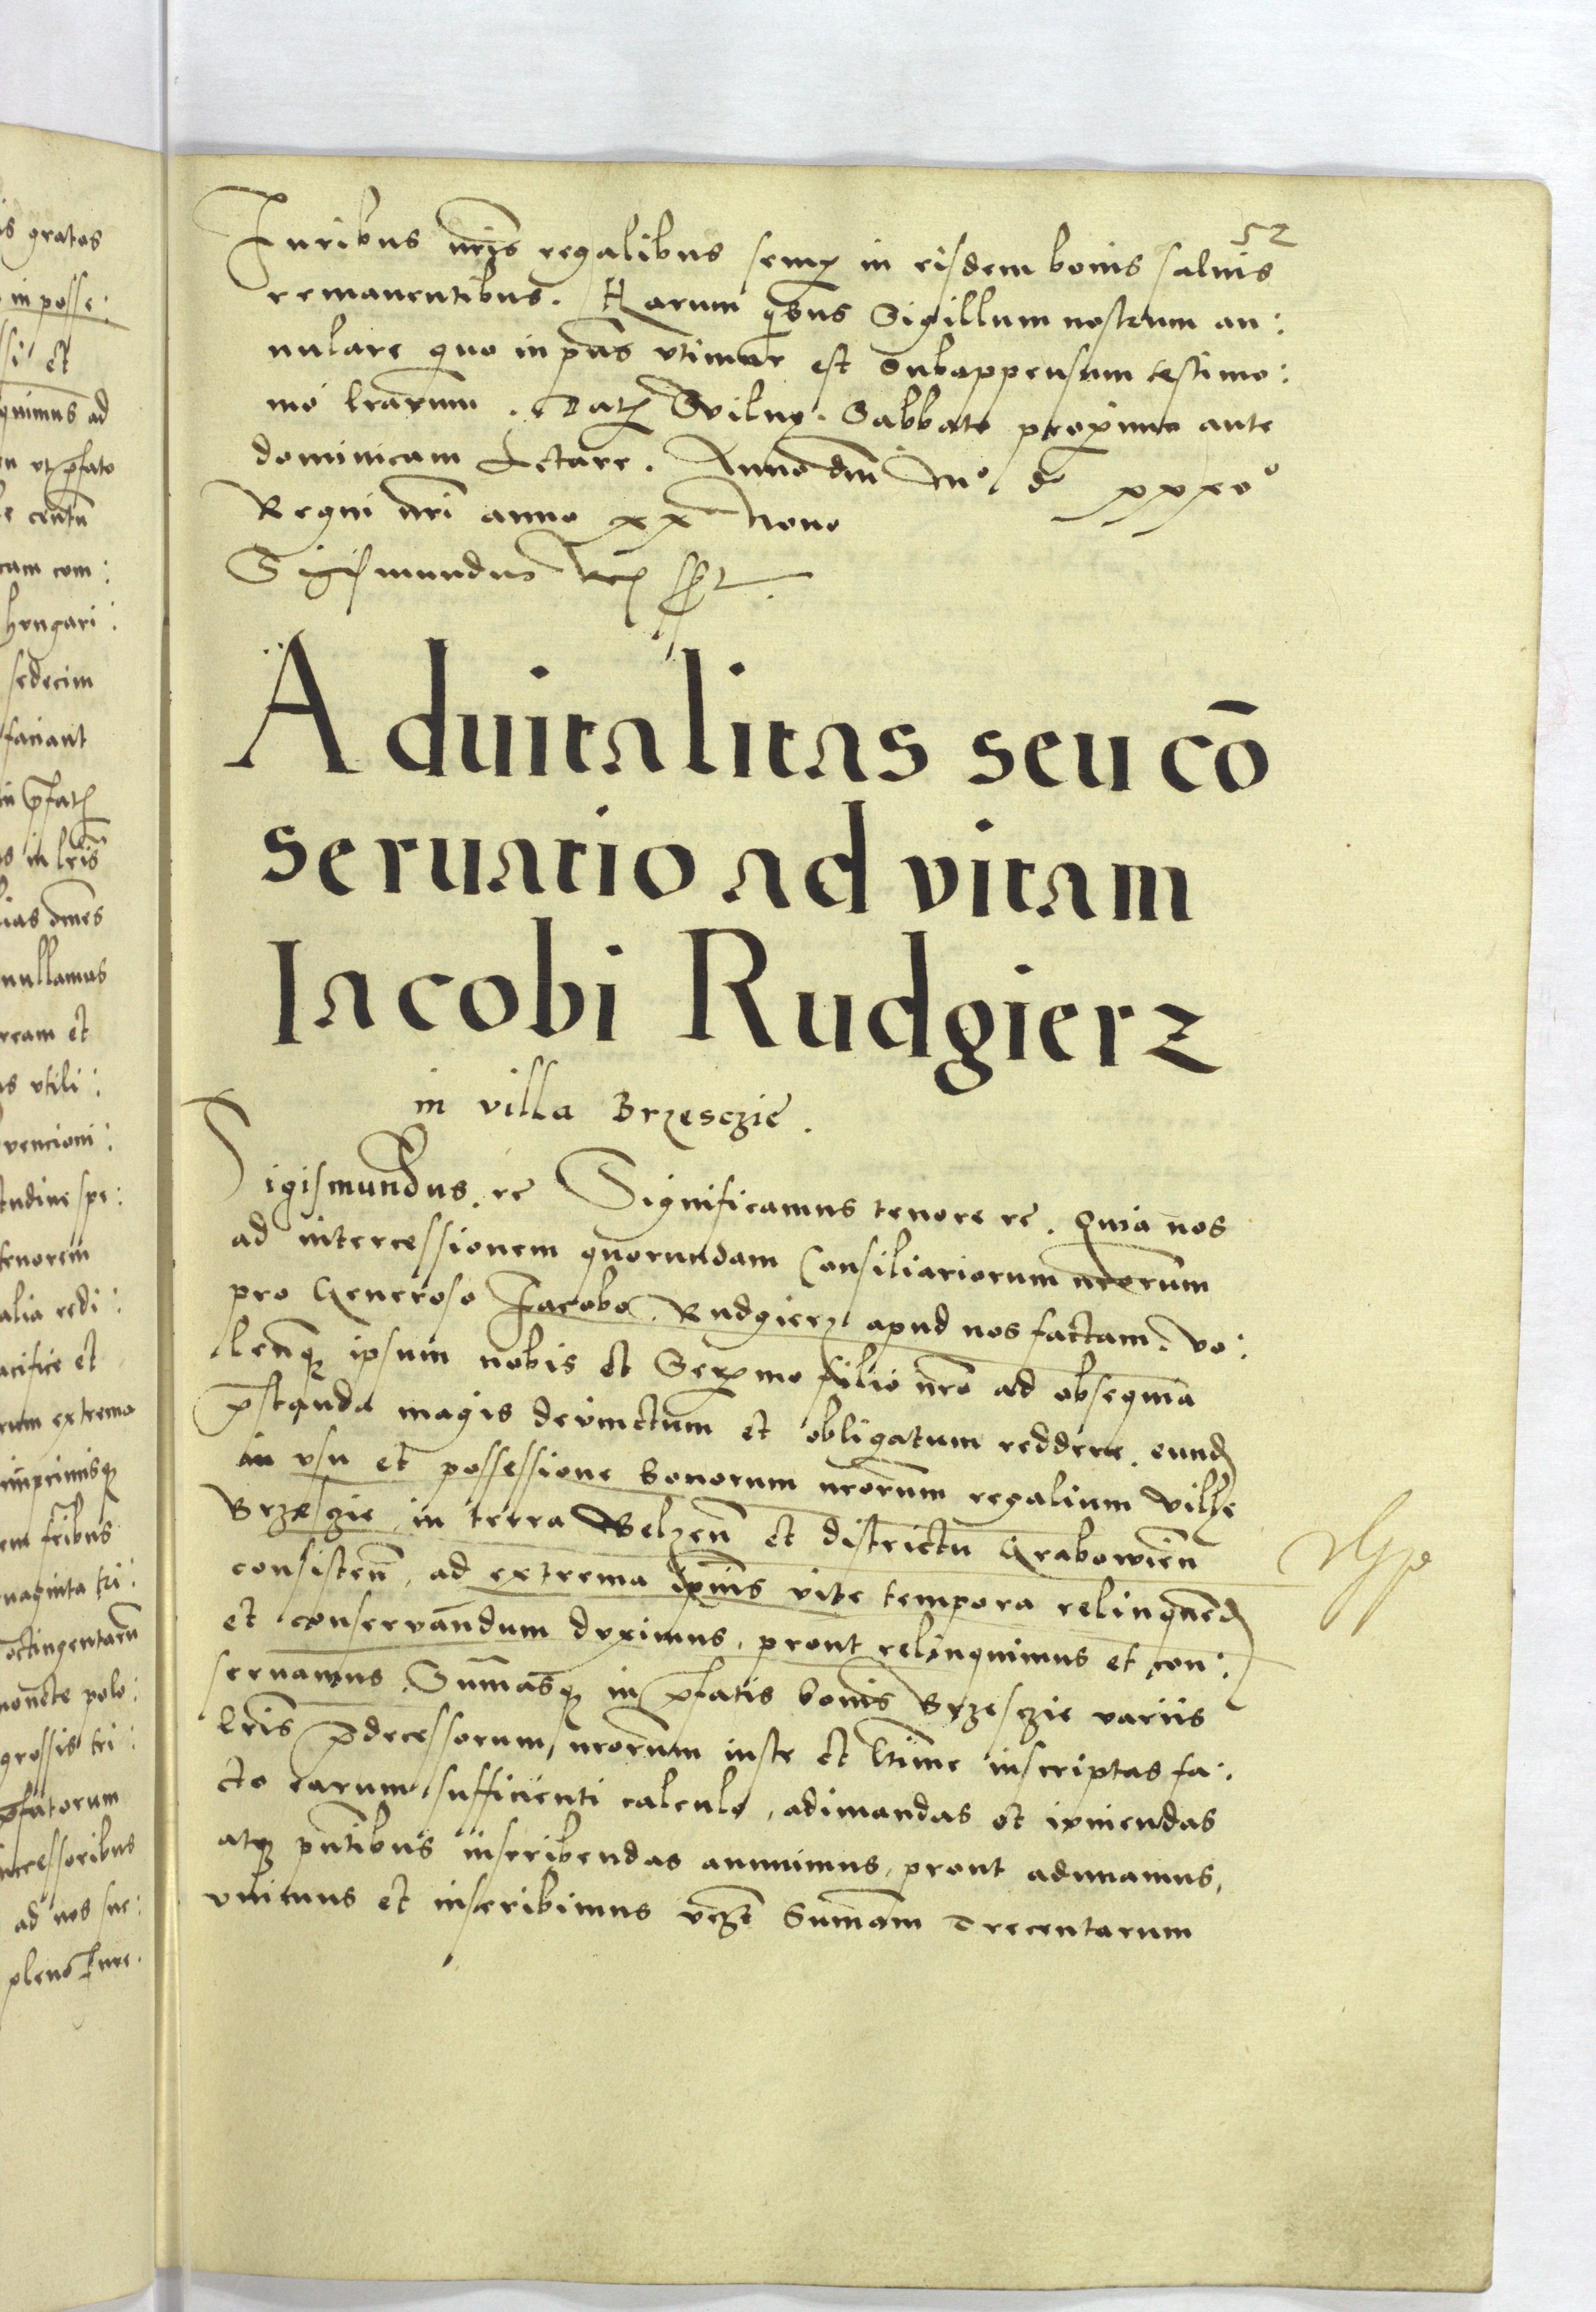 52
Iuribus nr̃is regalibus semp in eisdem bonis saluis
remanentibus. Harum qbus Sigillum nostrum an:
nulare quo in pñs vtimur est Subappensum testimo:
nio lrarum. Dat Vilnę. Sabbato proximo ante
dominicam Letare. Anno dni Mº dº xxxvº
Regni nr̃i anno xx Nono
Sigismundus Rex sst
Aduitalitas seu cō
seruatio ad vitam
Iacobi Rudgierz
in villa Brzesczie.
Sigismundus. rc Significamus tenore rc. Quia nos
ad intercessionem quorundam Consiliariorum nrorum
pro Generoso Jacobo Rudgierz apud nos factam. Vo:
lentq ipsum nobis et Sermo filio nro ad obsequia
pstanda magis deuinctum et obligatum reddere. eund
in vsu et possessione bonorum nrorum regalium Ville
Brzesczie in terra Belzen et districtu Grabowien
consisten, ad extrema ipsius vite tempora relinquend
et conservandum duximus, prout relinquimus et con:
seruamus. Summasq in pfatis bonis Brzesczie variis
lris pdecessorum nrorum iuste et ltime inscriptas fa:
cto earum sufficienti calculo, adunandas et vniendas
atq pntibus inscribendas annuimus, prout adunamus,
vnimus et inscribimus vczt Summam Trecentarum
is gratos
in posse:
si et
quimus ad
en vt pfato
centu
cam com:
hungari:
sedecim
faciant
in pfat
in lris
lias omes
nullamus
ream et
as vtili:
vencioni:
tudine spe:
tenorem
alia redi:
acifice et
rum extrema
imprimisq
em fribus
uaginta tri:
octingentaru
monete polo:
grossis tri:
pfatorum
ucessoribus
ad nos suc:
pleno iure.